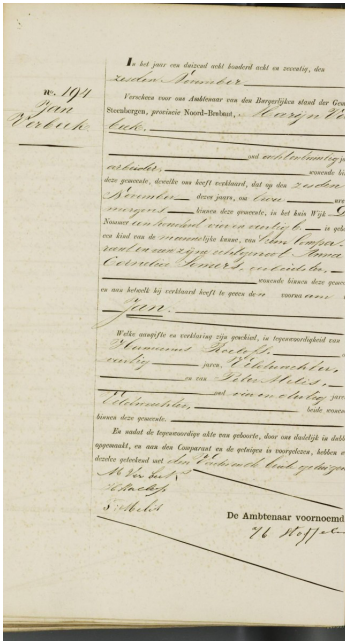 In het jaar een duizend acht honderd acht en zeventig, den
zesden November
N°. 194
Verscheen voor ons Ambtenaar van den Burgerlijken stand der Gem
Jan
Steenbergen, provincie Noord-Brabant, Marijn Ver
Verbeek
beek.
oud achtentwintig ja
arbeider, wonende bi
deze gemeente, dewelke ons heeft verklaard, dat op den zesden
November dezes jaars, om een ure
morgens binnen deze gemeente, in het huis Wijk D
Nommer een honderd vier en veertig b is gebo
een kind van de mannelijke kunne, van hem Compa-
rant en van zijne echtgenoot Anna
Cornelia Somers, arbeidster,
wonende binnen deze gemeen
en aan hetwelk hij verklaard heeft te geven den voornaam
Jan.
Welke aangifte en verklaring zijn geschied, in tegenwoordigheid van
Roelofs,
veertig jaren, Veldwachter,
en van Peter Melis,
oud een en dertig jaren
Veldwachter, beide wonen
binnen deze gemeente.
En nadat de tegenwoordige akte van geboorte, door ons dadelijk in dubb
opgemaakt, en aan den Comparant en de getuigen is voorgelezen, hebben
dezelve geteekend met ons.
M. Verbeek
Roelofs
P. Melis
De Ambtenaar voornoemd